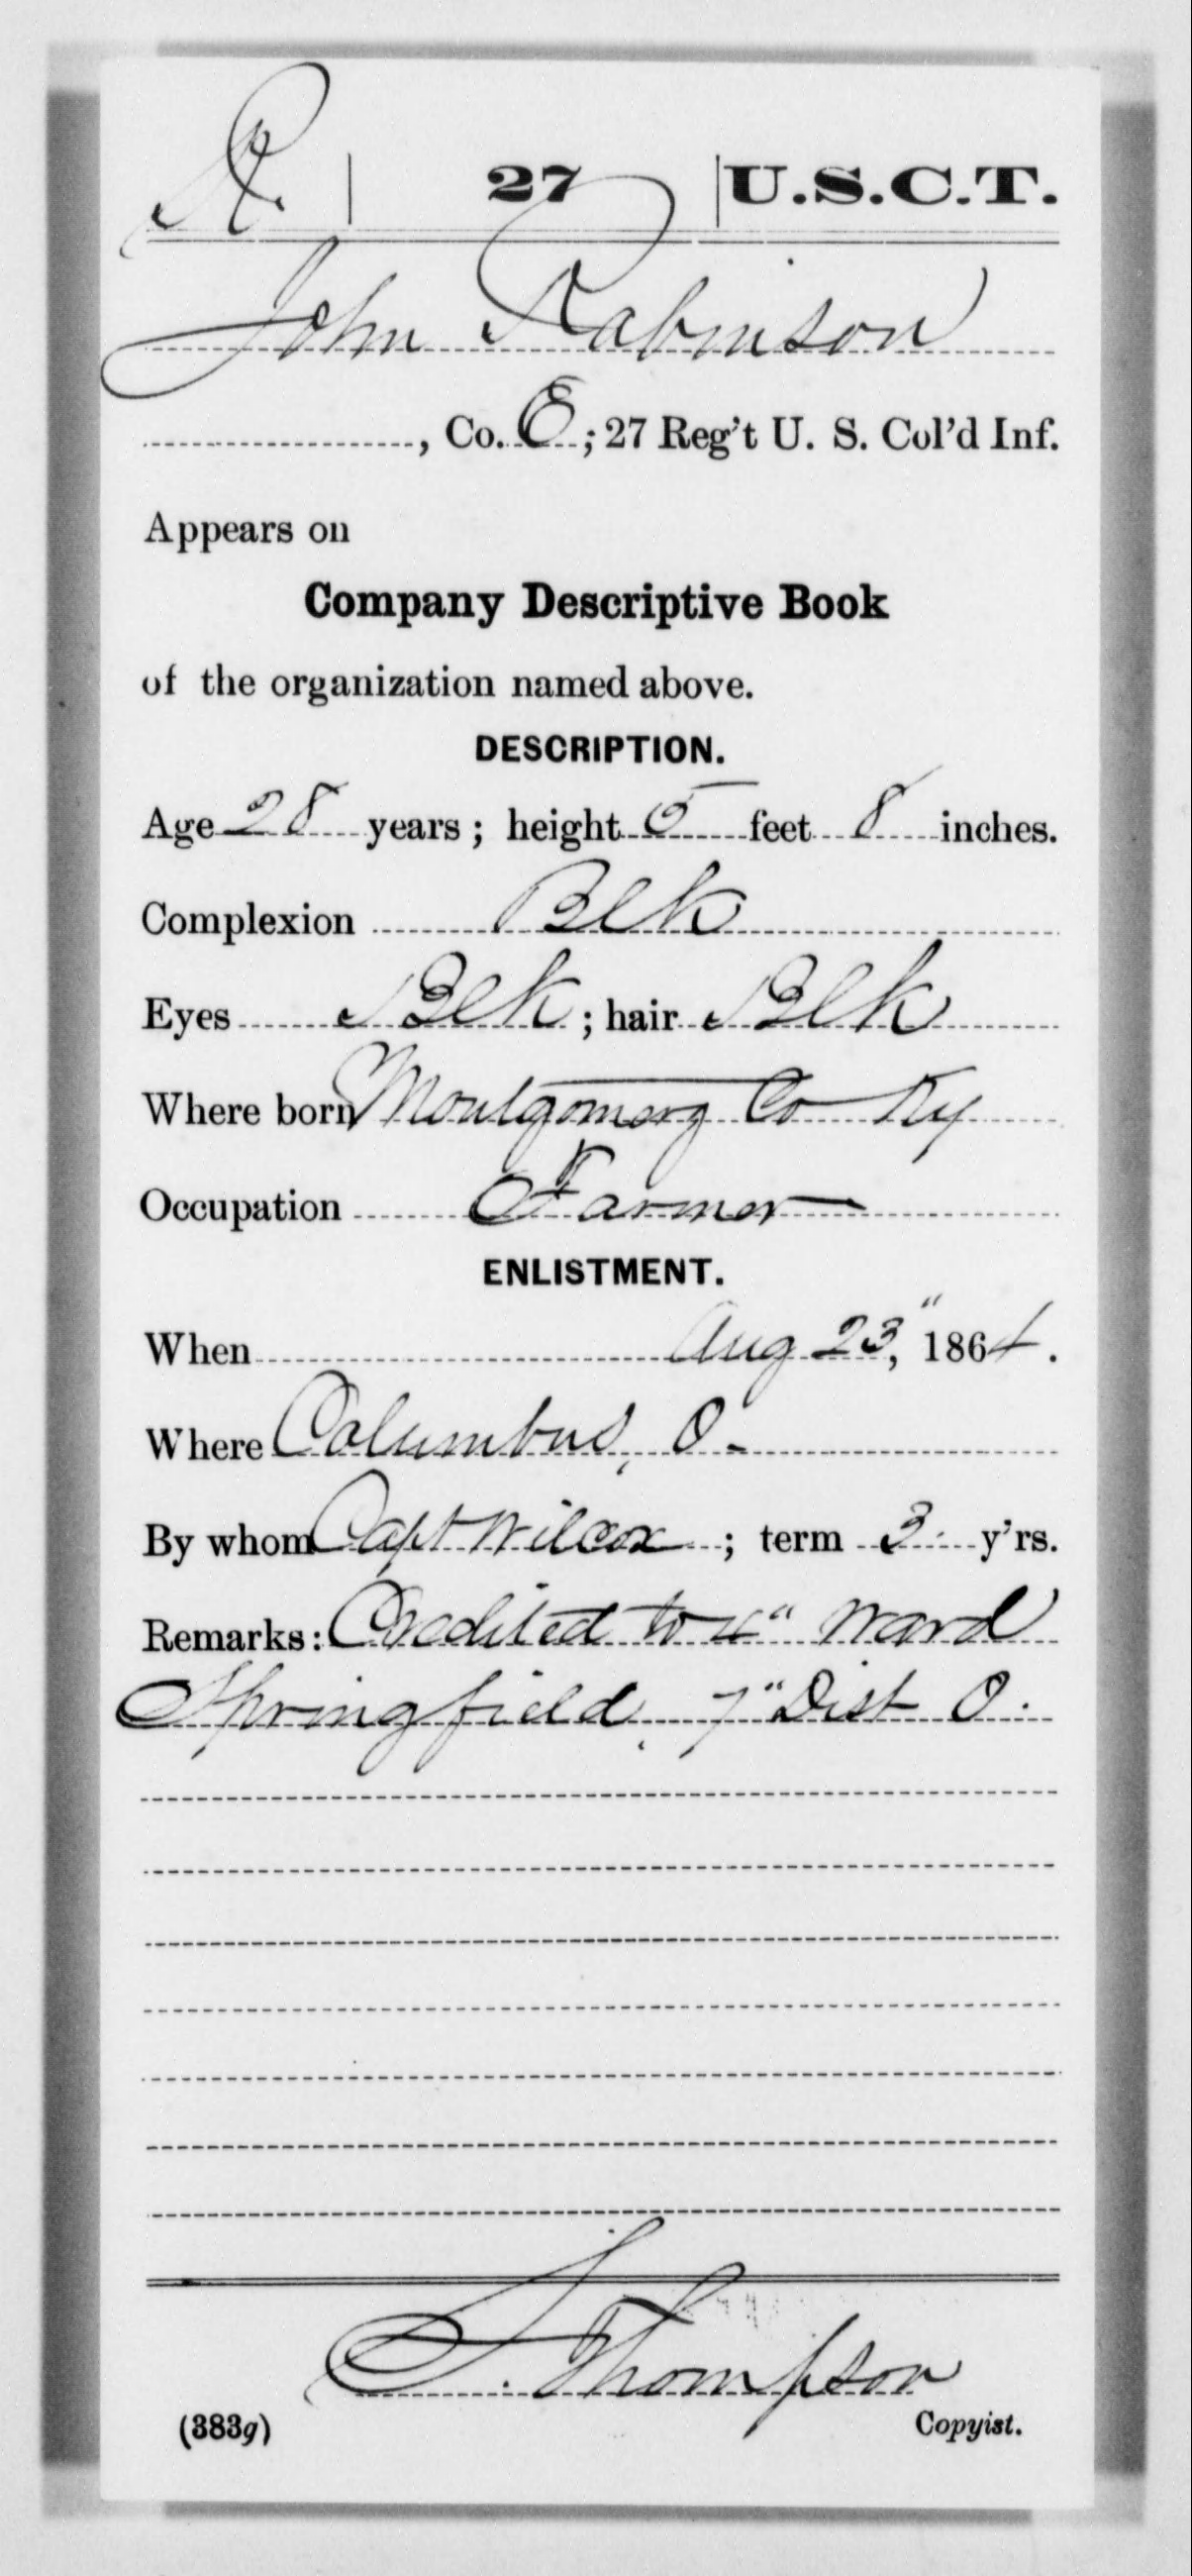 R. | 27 | U.S.C.T.
John Rabinson
, Co. E ; 27 Reg't U. S. Col'd Inf.
Appears on
Company Descriptive Book
of the organization named above.
DESCRIPTION.
Age 28 years ; height 5 feet 8 inches.
Complexion Blk
Eyes Blk ; hair Blk
Where born Montgomery Co Ky
Occupation Farmer
ENLISTMENT.
When Aug 23", 1864.
Where Columbus, O.
By whom Capt Wilcox ; term 3 y'rs.
Remarks: Credited to 4" Ward
Springfield, 7" Dist O.
S. Thompson
(383g) Copyist.